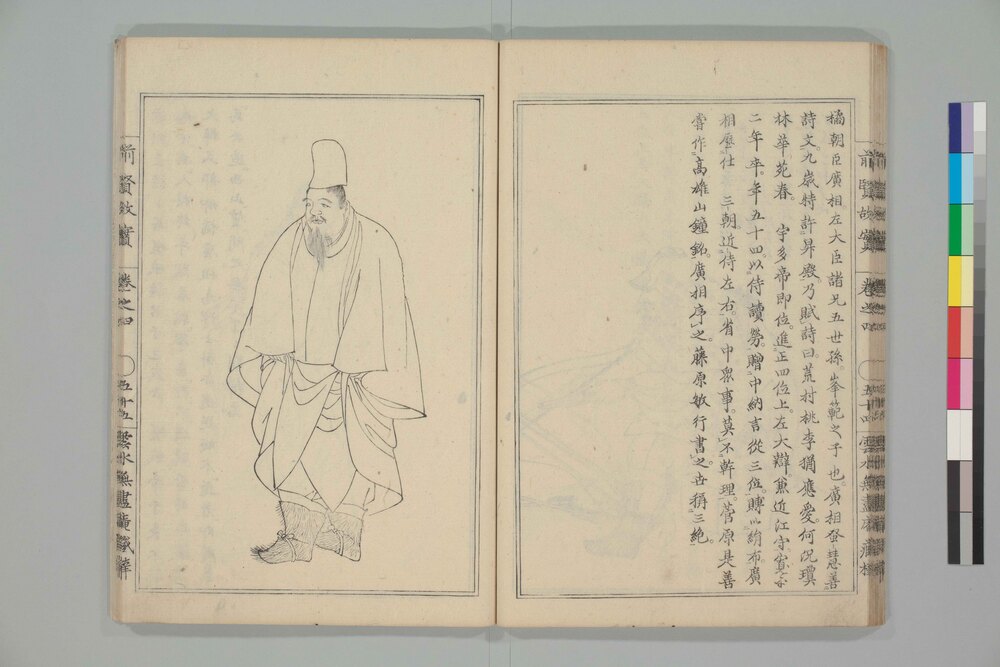 橘朝臣廣相左大臣諸兄五世孫。峯範之子也。廣相發慧善
詩文。九歲特許昇殿。乃賦詩曰荒村桃李猶應愛。何況瓊
林華苑春。宇多帝即位。進正四位上。左大辯。兼近江守。寬平
二年卒。年五十四。以侍讀勞。贈中納言從三位。賻以絹布。廣
相歷仕三朝。近侍左右。省中眾事。莫不幹理。菅原是善
嘗作高雄山鐘銘。廣相序之。藤原敏行書之。世稱三絶。
前賢故實 卷之四 五十四 雲水無盡庵藏板
前賢故實 卷之四 五十五 雲水無盡庵藏